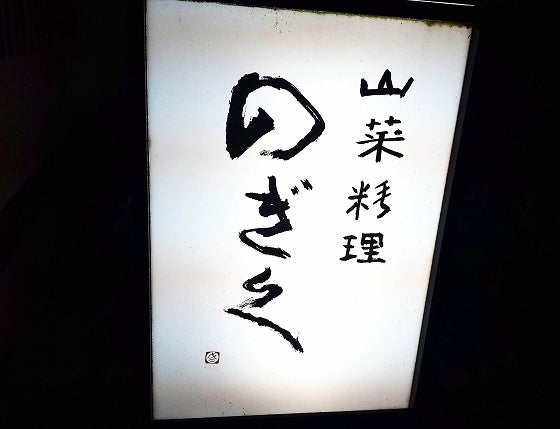 山菜料理
のぎく